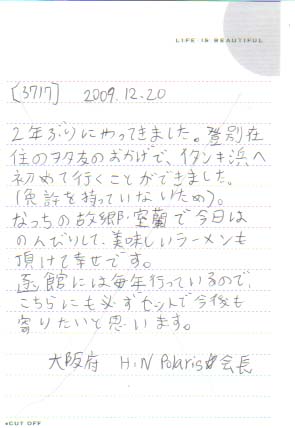 LIFE IS BEAUTIFUL
[3717] 2009.12.20
2年ぶりにやってきました。登別在
住のヲタ友のおかげで、イタンキ浜へ
初めて行くことができました。
(免許を持っていないため)。
なっちの故郷・室蘭で今日は
のんびりして、美味しいラーメンも
頂けて幸せです。
函館には毎年行っているので、
こちらにも必ずセットで今後も
寄りたいと思います。
大阪府 H.N Polaris☆会長
CUT OFF